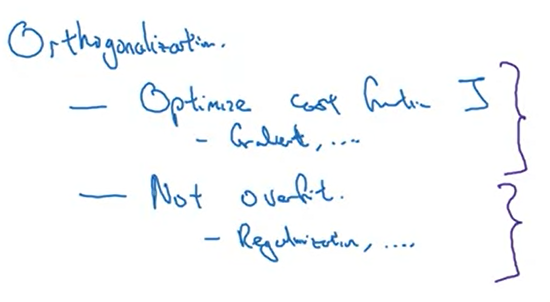 Orthogonalization.
— Optimize cost function J
- Gradient, ....
— Not overfit.
- Regularization, ....